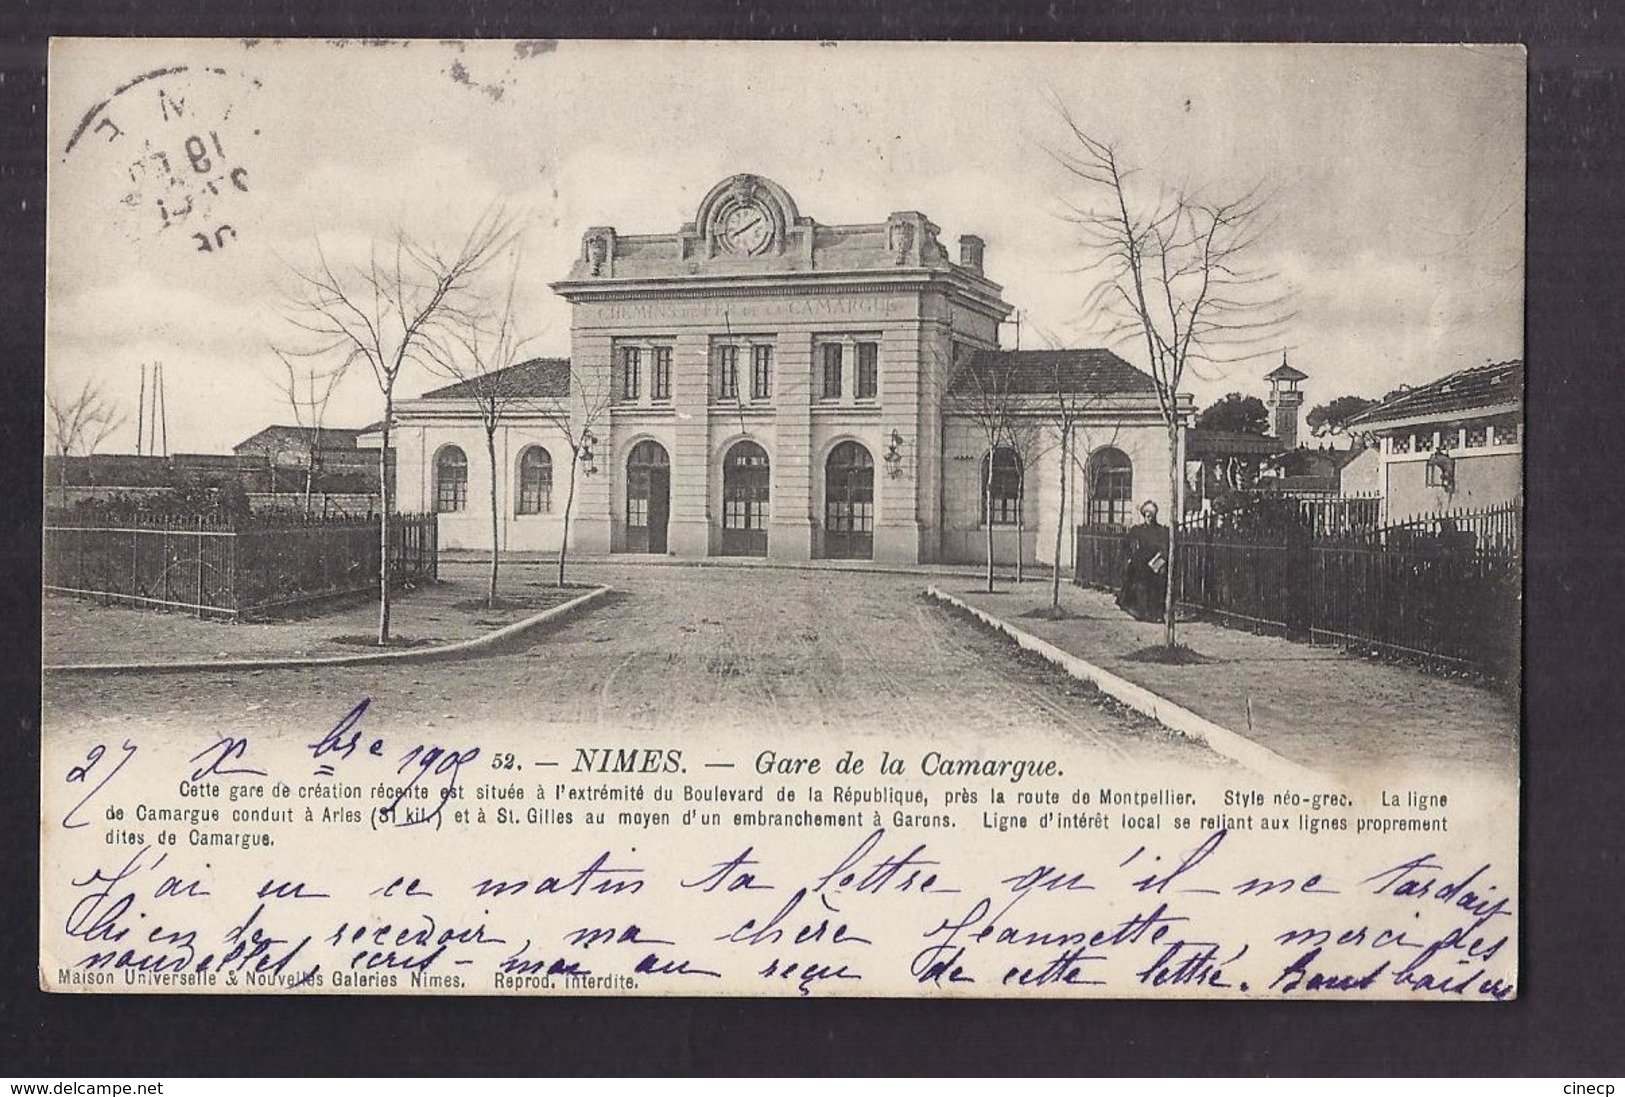 CHEMINS DE FER DE LA CAMARGUE
27 Xbre 1905
52. — NIMES. — Gare de la Camargue.
Cette gare de création récente est située à l'extrémité du Boulevard de la République, près la route de Montpellier. Style néo-grec. La ligne
de Camargue conduit à Arles (31 kil.) et à St. Gilles au moyen d'un embranchement à Garons. Ligne d'intérêt local se reliant aux lignes proprement
dites de Camargue.
J'ai eu ce matin ta lettre qu'il me tardait
bien de recevoir, ma chère Jeannette, merci des
nouvelles, écris-moi au reçu de cette lettre. Bons baisers
Maison Universelle & Nouvelles Galeries Nimes. Reprod. interdite.
delcampe.net
cinecp